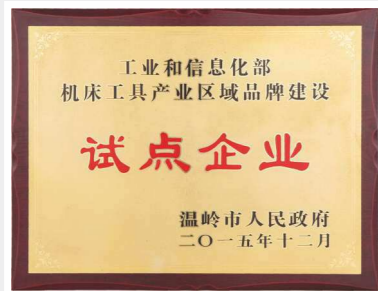 工业和信息化部
机床工具产业区域品牌建设
试点企业
温岭市人民政府
二〇一五年十二月